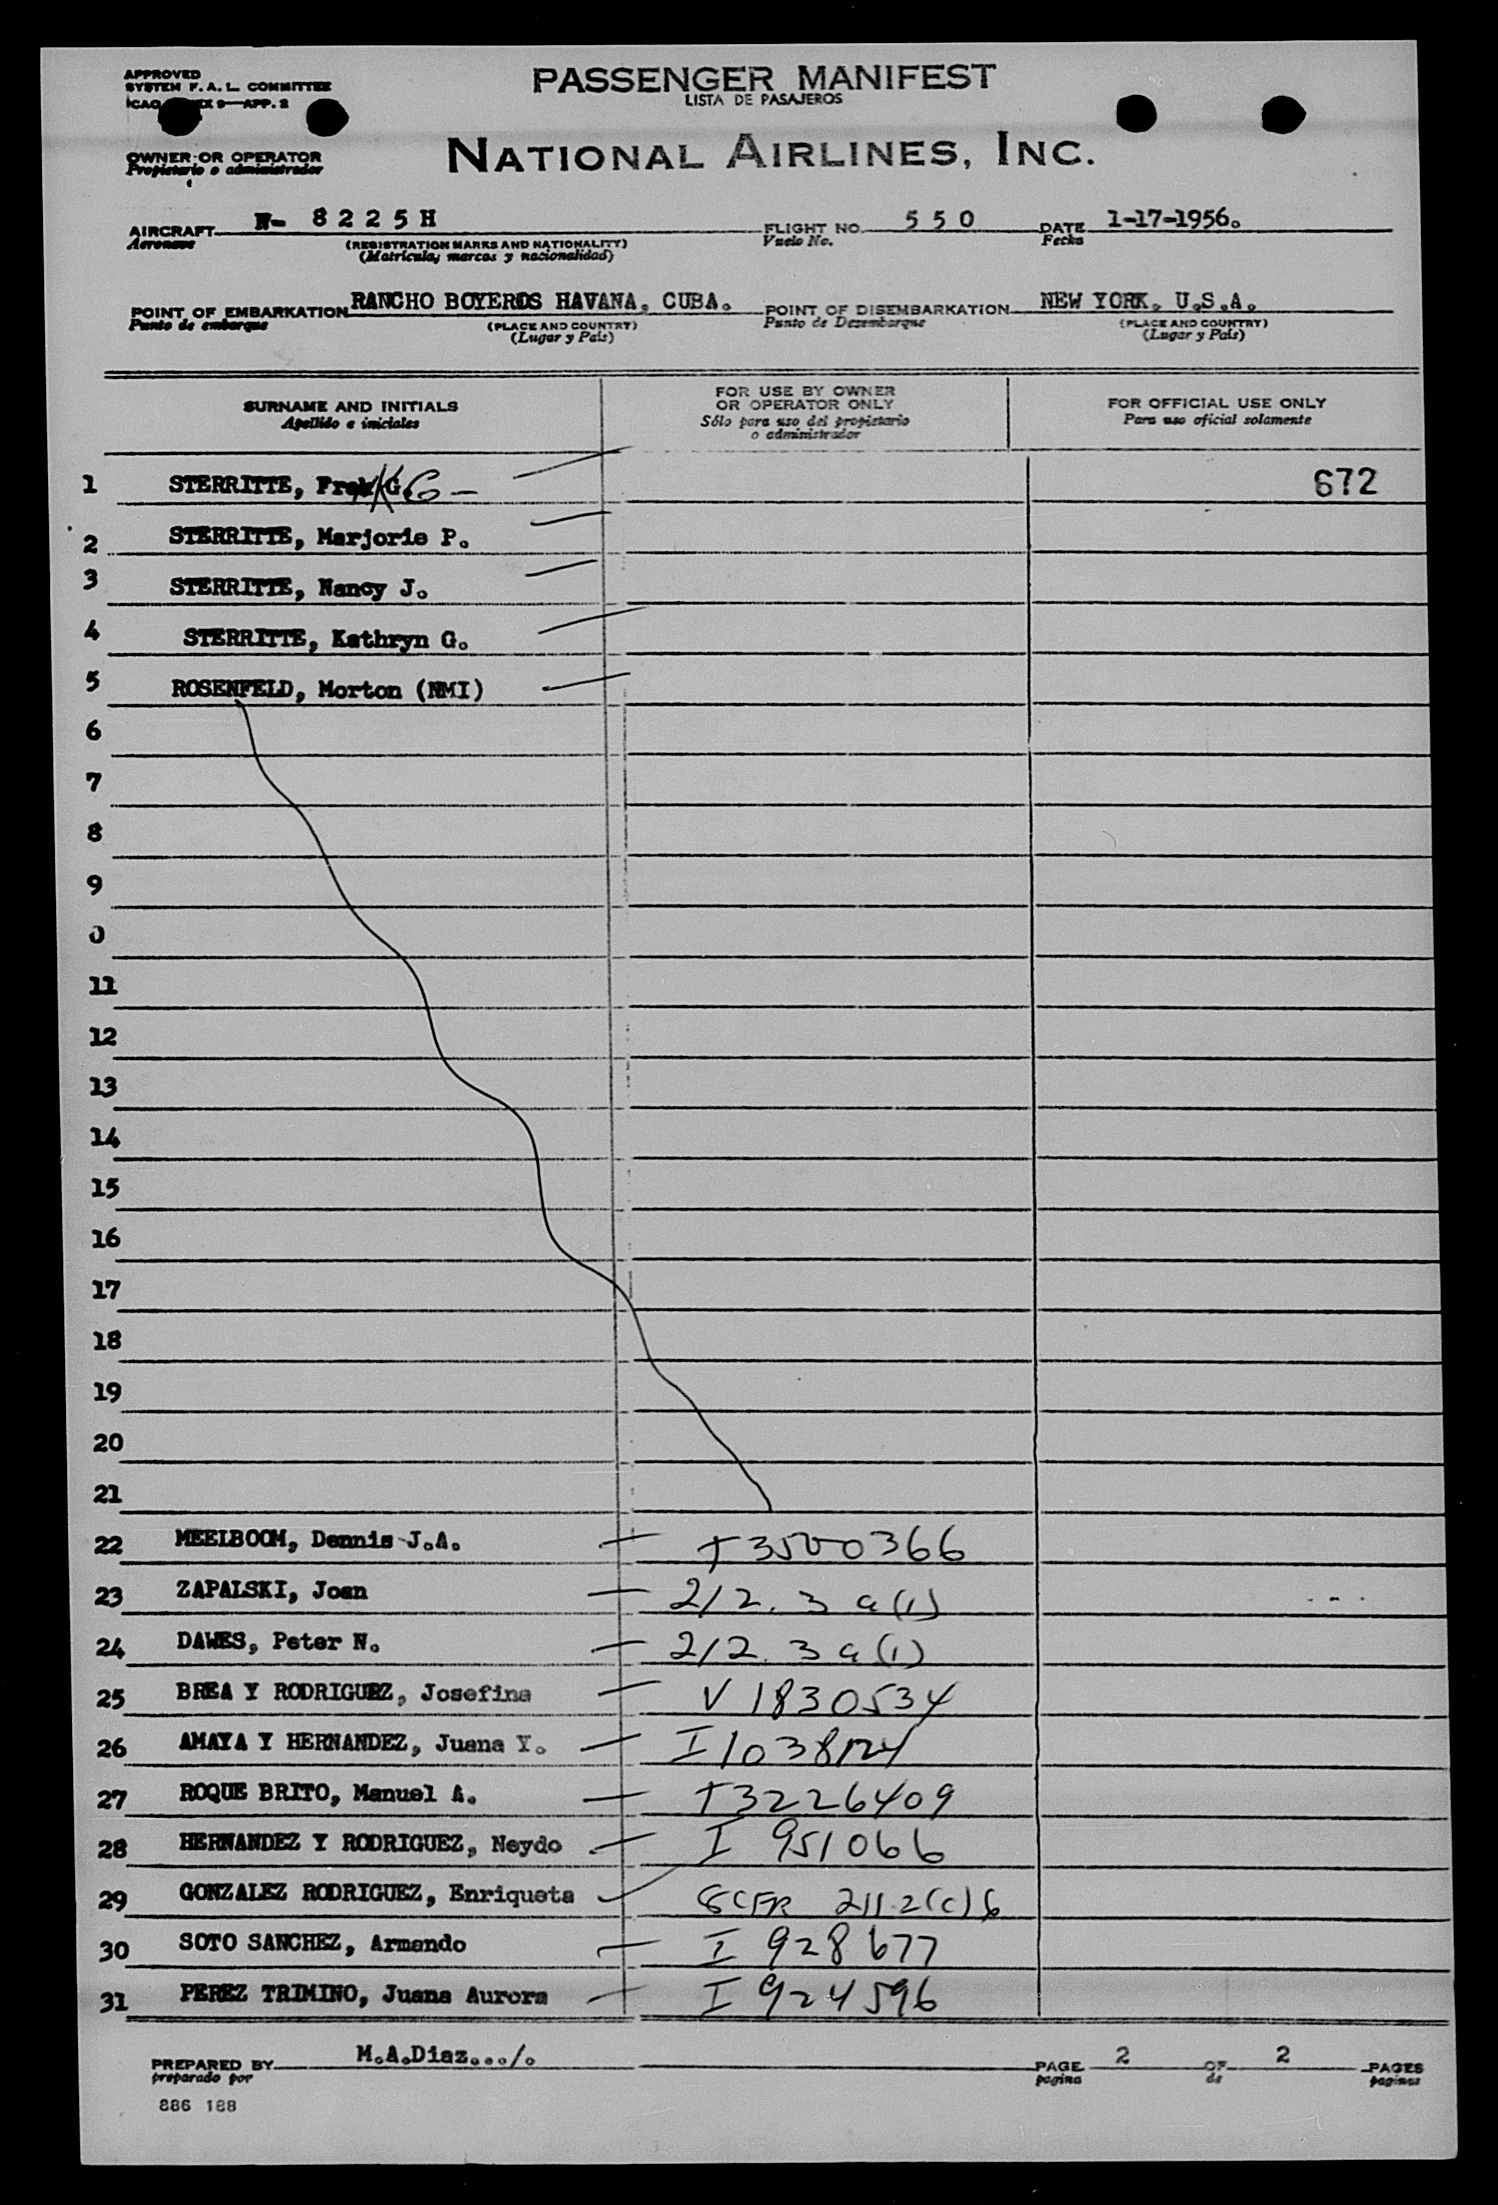 APPROVED
SYSTEM F. A. L. COMMITTEE
ICAO 9—APP. 2
PASSENGER MANIFEST
LISTA DE PASAJEROS
OWNER OR OPERATOR
Propietario o administrador
NATIONAL AIRLINES, INC.
AIRCRAFT N- 8 2 2 5 H FLIGHT NO. 5 5 0 DATE 1-17-1956.
Aeronave (REGISTRATION MARKS AND NATIONALITY) Vuelo No. Fecha
(Matricula, marcas y nacionalidad)
POINT OF EMBARKATION RANCHO BOYEROS HAVANA, CUBA. POINT OF DISEMBARKATION NEW YORK, U.S.A.
Punto de embarque (PLACE AND COUNTRY) Punto de Desembarque (PLACE AND COUNTRY)
(Lugar y País) (Lugar y País)
SURNAME AND INITIALS
Apellido e iniciales
FOR USE BY OWNER
OR OPERATOR ONLY
Sólo para uso del propietario
o administrador
FOR OFFICIAL USE ONLY
Para uso oficial solamente
1 STERRITTE, G. 672
2 STERRITTE, Marjorie P.
3 STERRITTE, Nancy J.
4 STERRITTE, Kathryn G.
5 ROSENFELD, Morton (NMI)
6
7
8
9
0
11
12
13
14
15
16
17
18
19
20
21
22 MEELBOOM, Dennis J.A. T3500366
23 ZAPALSKI, Joan 212. 3 a (1)
24 DAWES, Peter N. 212. 3 a (1)
25 BREA Y RODRIGUEZ, Josefina V 1830534
26 AMAYA Y HERNANDEZ, Juana Y.
27 ROQUE BRITO, Manuel A. T3226409
28 HERNANDEZ Y RODRIGUEZ, Neydo I 951066
29 GONZALEZ RODRIGUEZ, Enriqueta 8CFR 211.2(c)6
30 SOTO SANCHEZ, Armando I 928677
31 PEREZ TRIMINO, Juana Aurora I 924596
PREPARED BY M.A.Diaz.../. PAGE 2 OF 2 PAGES
preparado por pagina de paginas
886 188